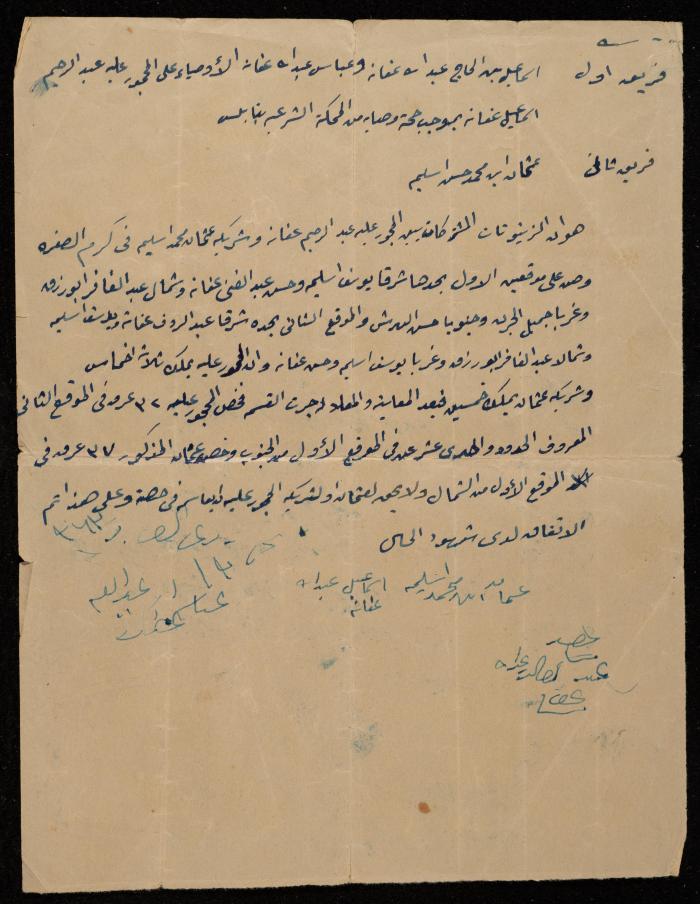 فريق اول اسماعيل بن الحاج عبد الله عفانه وعباس عبد الله عفانه الأوصياء على المحجور عليه عبد الرحيم
اسماعيل عفانه بموجب حجة وصايه من المحكمة الشرعيه بنابلس
فريق ثاني عثمان ابن محمد حسن اسليم
هو ان الزيتونات المشتركات بين المحجور عليه عبد الرحيم عفانه وشريكه عثمان محمد اسليم في كرم الصفره
وهن على موقعين الاول يحدها شرقا يوسف اسليم وحسن عبد الغني عفانه وشمال عبد الغافر ابو رزق
وغربا جميل وجنوبا حسن والموقع الثاني يحده شرقا عبد الروف عفانه ويوسف اسليم
وشمالا عبد الغافر ابو رزق وغربا يوسف اسليم وحسن عفانه وان المحجور عليه يملك ثلاثة اخماس
وشريكه عثمان يملك خمسين فبعد المعاينه والمعادله جرت القسمه فخص المحجور عليه ٣٢ عرق في الموقع الثاني
المعروف الحدود واحدى عشر عرق في الموقع الأول من الجنوب وخص عثمان المذكور ٣٧ عرق في
الموقع الأول من الشمال ولا يحق لعثمان او لشريكه المحجور عليه ان يعارض في حصة وعلى هذا تم
الاتفاق لدى شهود الحال
عثمان ابن محمد اسليم
اسماعيل عبد الله
عفانه
عباس عبد الله
عفانه
شاهد
عبد
عفانه